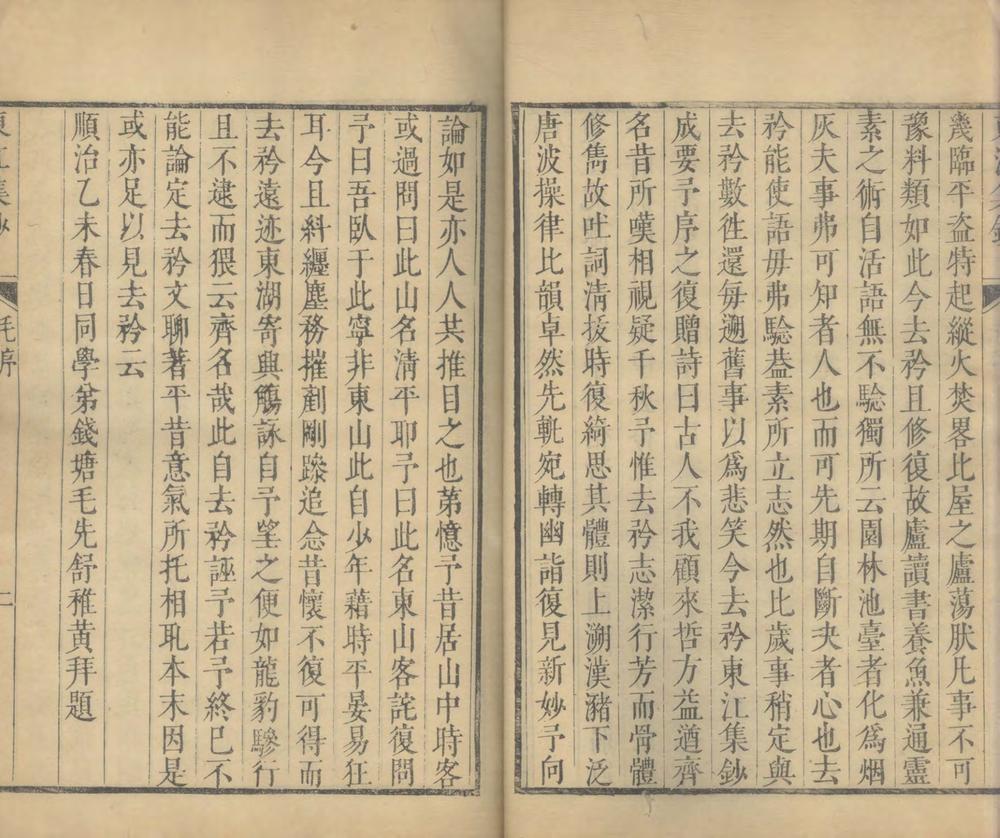 幾臨平盜特起縱火焚畧比屋之廬蕩肰凡事不可
豫料類如此今去矜且修復故廬讀書養魚兼通靈
素之術自活語無不驗獨所云園林池臺者化爲烟
灰夫事弗可知者人也而可先期自斷夬者心也去
矜能使語毋弗驗葢素所立志然也比歲事稍定與
去矜數徃還毎遡舊事以爲悲笑今去矜東江集鈔
成要予序之復贈詩曰古人不我顧來哲方益遒齊
名昔所嘆相視疑千秋予惟去矜志潔行芳而骨體
修雋故吐詞淸拔時復綺思其體則上溯漢瀦下泛
唐波操律比韻卓然先軌宛轉幽詣復見新妙予向
論如是亦人人共推目之也第憶予昔居山中時客
或過問曰此山名淸平耶予曰此名東山客詫復問
予曰吾臥于此寧非東山此自少年藉時平晏易狂
耳今且糾纏塵務摧剷剛躁追念昔懷不復可得而
去矜遠迹東湖寄興觴詠自予望之便如龍豹驂行
且不逮而猥云齊名哉此自去矜誣予若予終已不
能論定去矜文聊著平昔意氣所托相耴本末因是
或亦足以見去矜云
順治乙未春日同學弟錢塘毛先舒稚黃拜題
東江集鈔
毛序
二